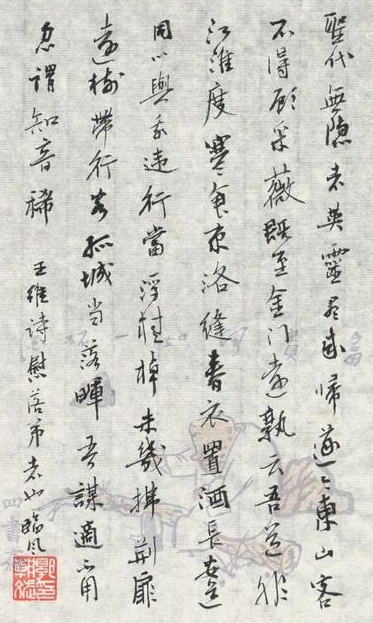 聖代無隐者英靈盡来歸遂令東山客
不得顧采薇既至金门遠孰云吾道非
江淮度寒食京洛縫春衣置酒長安道
同心與我違行當浮桂棹未幾拂荆扉
遠樹帶行客孤城当落暉吾謀適不用
忽謂知音稀
王維诗慰落弟者山臨风